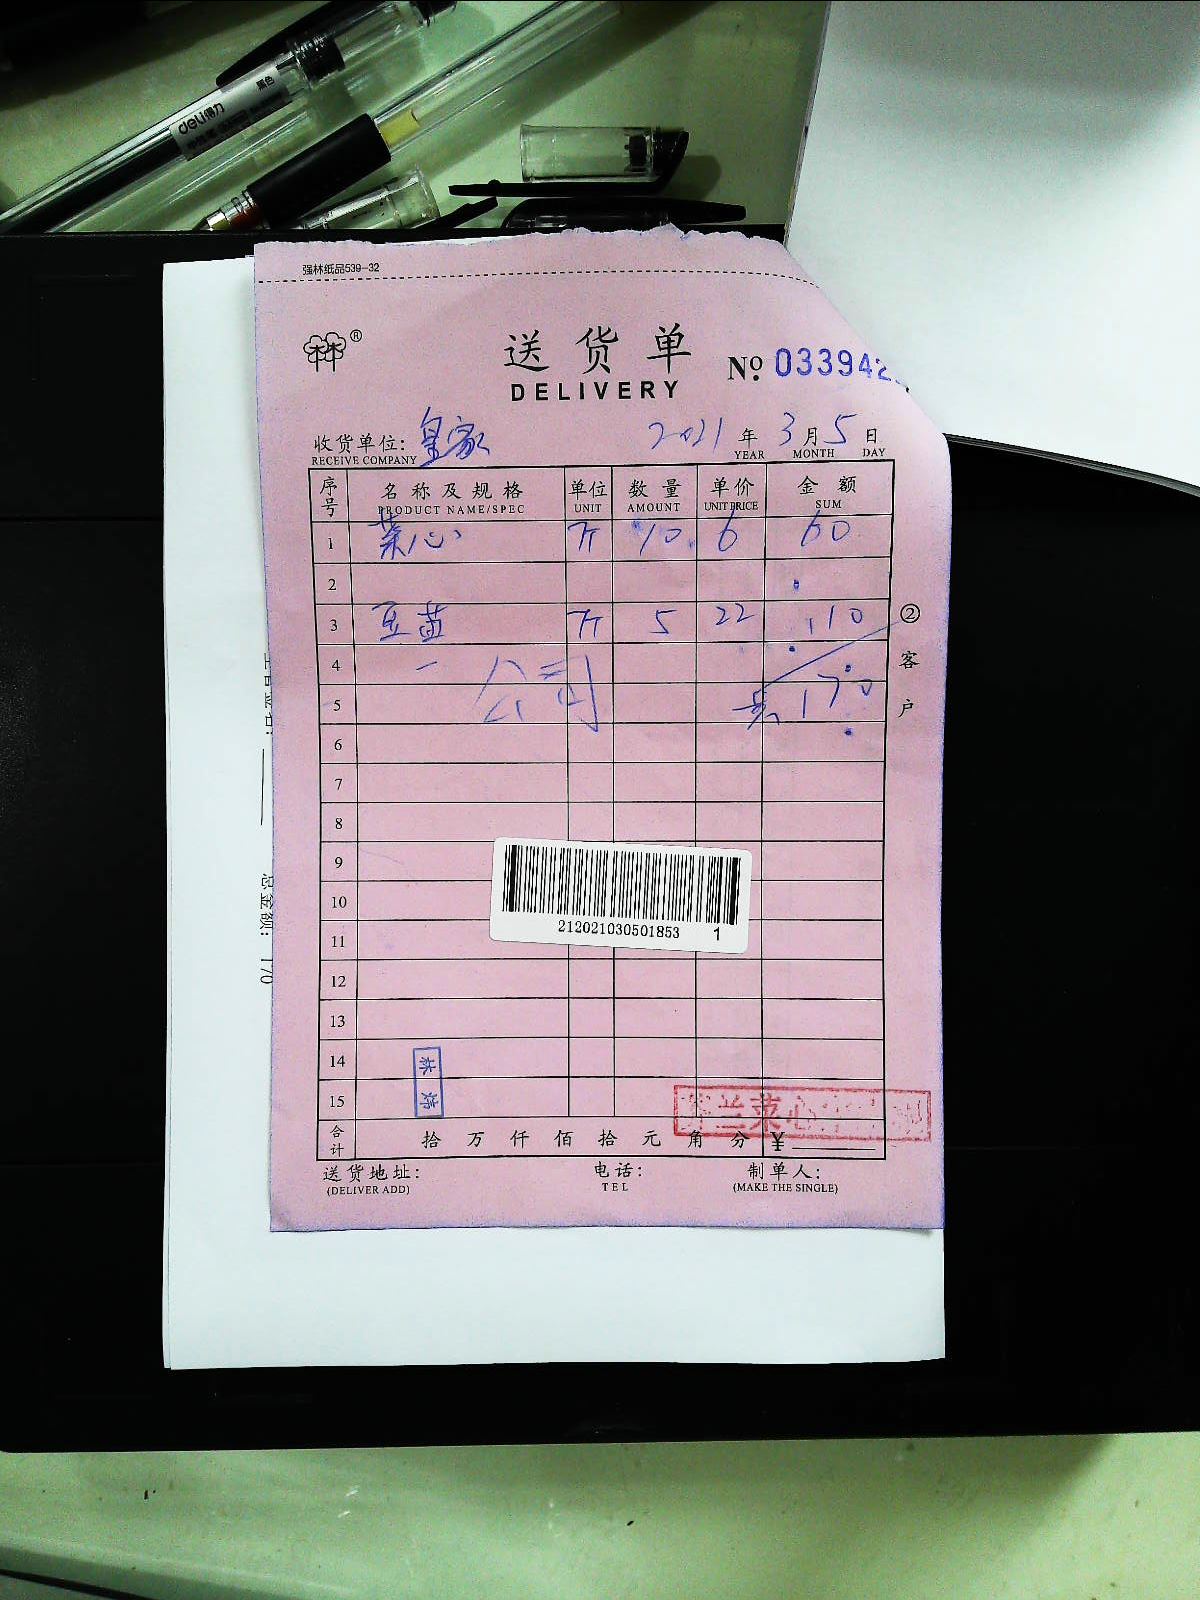 deli得力
黑色
强林纸品539-32
林®
送货单
DELIVERY
№ 033942
收货单位: 皇家 2021 年 3 月 5 日
RECEIVE COMPANY YEAR MONTH DAY
序号 名称及规格 单位 数量 单价 金额
PRODUCT NAME/SPEC UNIT AMOUNT UNIT PRICE SUM
1 菜心 斤 10 6 60
2
3 豆苗 斤 5 22 110
4
5 170
6
7
8
9
10
11
12
13
14
15
②客户
212021030501853 1
合计 拾万仟佰拾元角分 ¥
送货地址: 电话: 制单人:
(DELIVER ADD) TEL (MAKE THE SINGLE)
总金额: 170